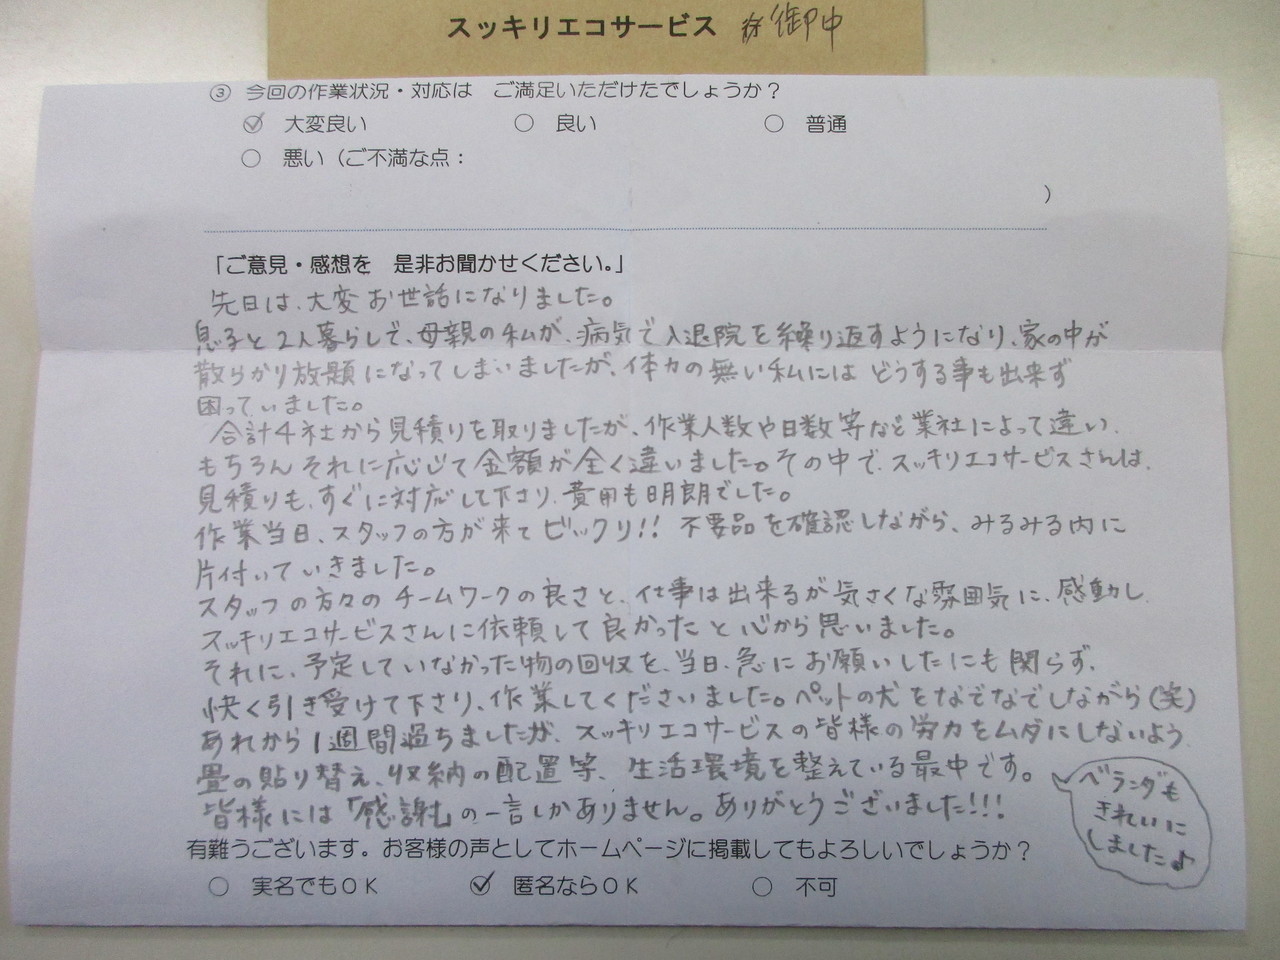 スッキリエコサービス 御中
③ 今回の作業状況・対応は ご満足いただけたでしょうか？
大変良い ○ 良い ○ 普通
○ 悪い（ご不満な点：
）
「ご意見・感想を 是非お聞かせください。」
先日は、大変お世話になりました。
息子と2人暮らしで、母親の私が、病気で入退院を繰り返すようになり、家の中が
散らかり放題になってしまいましたが、体力の無い私にはどうする事も出来ず
困っていました。
合計4社から見積りを取りましたが、作業人数や日数等など業社によって違い、
もちろんそれに応じて金額が全く違いました。その中で、スッキリエコサービスさんは、
見積りも、すぐに対応して下さり、費用も明朗でした。
作業当日、スタッフの方が来てビックリ!! 不要品を確認しながら、みるみる内に
片付いていきました。
スタッフの方々のチームワークの良さと、仕事は出来るが気さくな雰囲気に、感動し、
スッキリエコサービスさんに依頼して良かったと心から思いました。
それに、予定していなかった物の回収を、当日、急にお願いしたにも関らず、
快く引き受けて下さり、作業してくださいました。ペットの犬をなでなでしながら(笑)
あれから1週間過ちましたが、スッキリエコサービスの皆様の労力をムダにしないよう
畳の貼り替え、収納の配置等、生活環境を整えている最中です。
皆様には「感謝」の一言しかありません。ありがとうございました!!!
ベランダも
きれいに
しました♪
有難うございます。お客様の声としてホームページに掲載してもよろしいでしょうか？
○ 実名でもＯＫ ✓ 匿名ならＯＫ ○ 不可